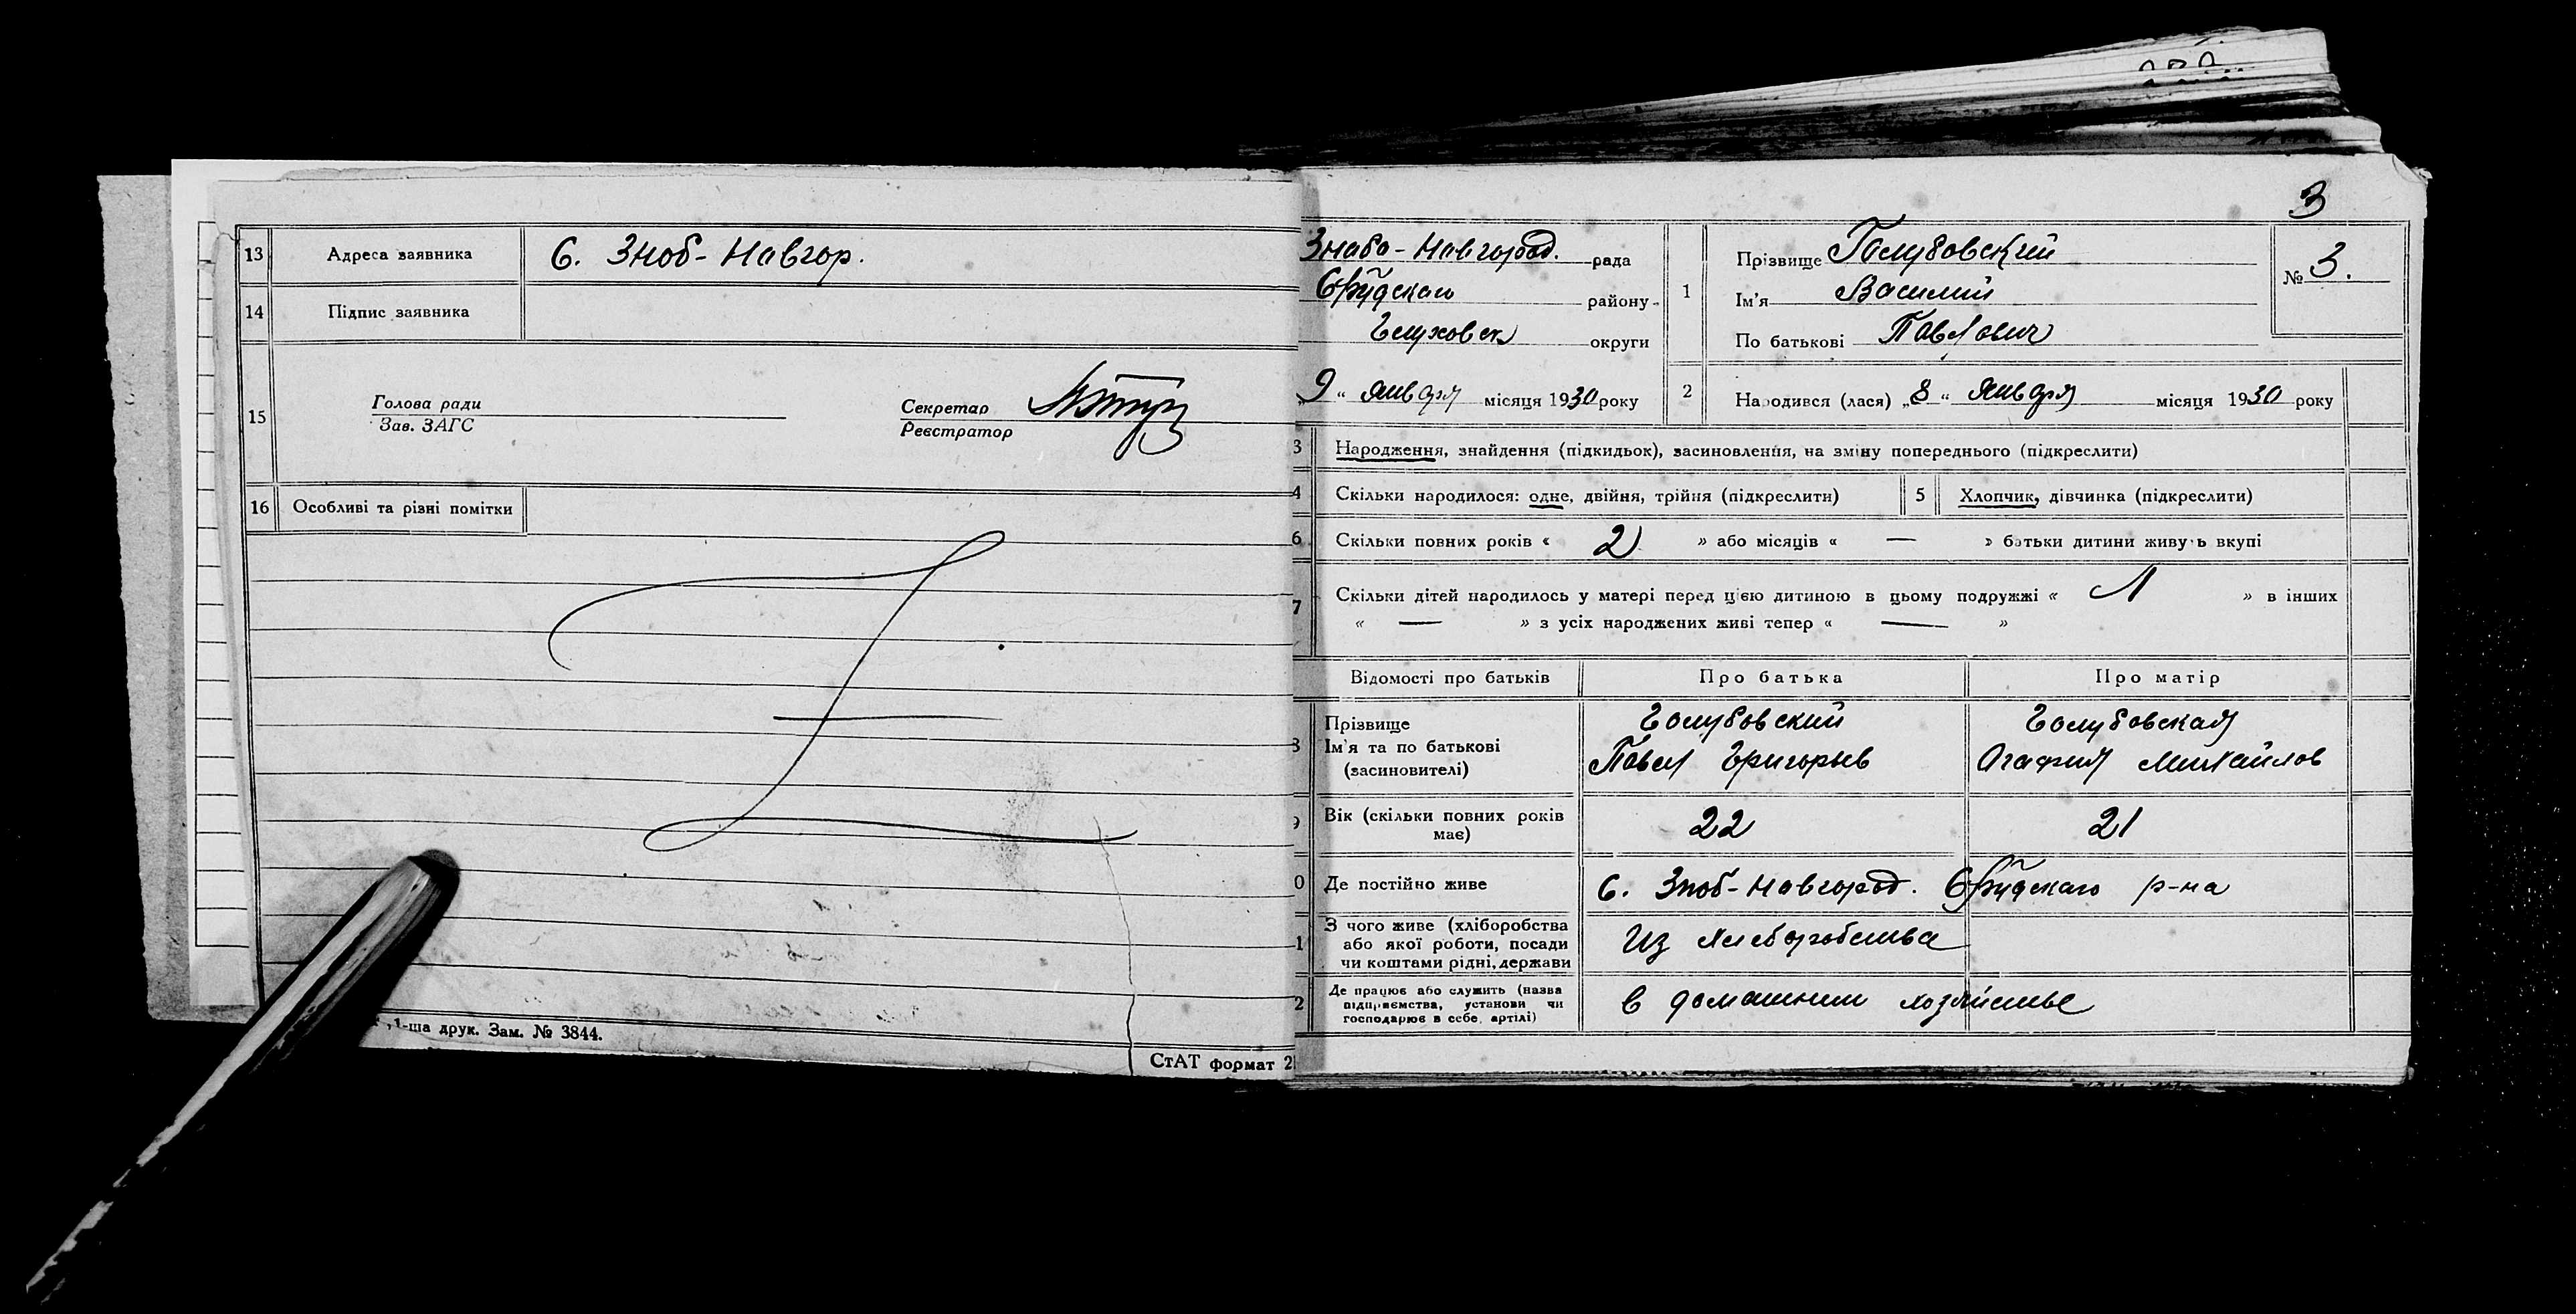 13 Адреса заявника С. Зноб-Навгор.
14 Підпис заявника
15 Голова ради
Зав. ЗАГС
Секретар
Реєстратор
16 Особливі та різні помітки
1-ша друк. Зам. № 3844.
СтАТ формат 2
3
Знобо-Новгород. рада
району
Глуховск округи
„9“ января місяця 1930 року
1 Прізвище Голубовский
Ім'я Василий
По батькові Павлович
№ 3.
2 Народився (лася) „8“ января місяця 1930 року
3 Народження, знайдення (підкидьок), засиновлення, на зміну попереднього (підкреслити)
4 Скільки народилося: одне, двійня, трійня (підкреслити) 5 Хлопчик, дівчинка (підкреслити)
6 Скільки повних років « 2 » або місяців « — » батьки дитини живуть вкупі
7 Скільки дітей народилось у матері перед цією дитиною в цьому подружжі « 1 » в інших
« — » з усіх народжених живі тепер « — »
Відомості про батьків Про батька Про матір
8 Прізвище Голубовский Голубовская
Ім'я та по батькові Павел Григорьев Агафия Михайлов
(засиновителі)
9 Вік (скільки повних років має) 22 21
0 Де постійно живе С. Зноб-Новгород. р-на
1 З чого живе (хліборобства
або якої роботи, посади
чи коштами рідні, держави
Из хлеборобства
2 Де працює або служить (назва
підприємства, установи чи
господарює в себе, артілі)
в домашнем хозяйстве